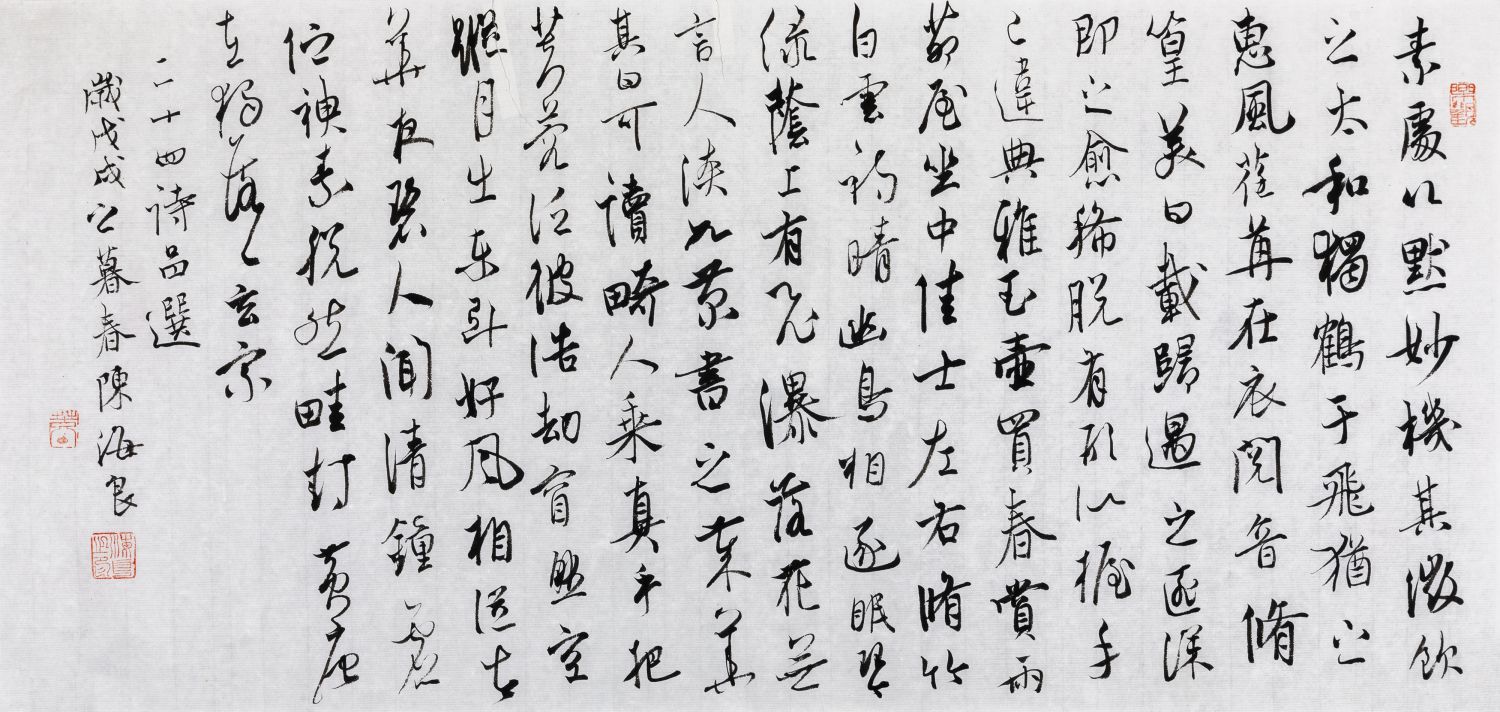 素處以默妙機其微飲
之太和獨鶴于飛猶之
惠風荏苒在衣閱音脩
篁美曰載歸遇之匪深
即之愈稀脫有形似握手
已違典雅玉壺買春賞雨
茆屋坐中佳士左右脩竹
白雲初晴幽鳥相逐眠琴
綠蔭上有飛瀑落花無
言人淡如菊書之歲華
其曰可讀畸人乘真手把
芙蓉泛彼浩劫窅然空
蹤月出東斗好風相從太
華夜碧人聞清鐘虛
佇神素脫然畦封黃唐
在獨落々玄宗
二十四詩品選
歲戊戌之暮春陳海良